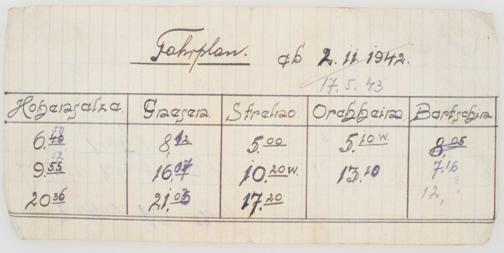 Fahrplan. ab 2.11.1942.
17.5.43
Hohensalza Gnesen Strelno Orchheim Bartschin
6.48 8,12 5.00 5.10 w. 8,05
9.55 16.07 10.20 w. 13.10 7.16
20.36 21.05 17.20 12,?